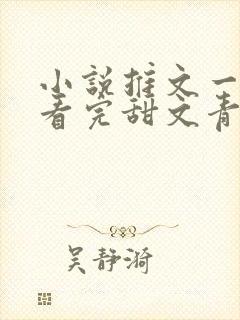 小说推文一
看完甜文青
吴静漪